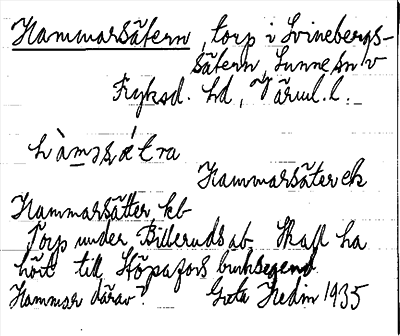 Hammarsätern, torp i Svinebergs-
sätern, Sunne sn v
Fryksd. hd, Värml. l.
hàmɔʂǽtra
Hammarsäter ek
Hammarsätter, kb
Torp under Billeruds ab. Skall ha
hört till Stöpafors bruksegend.
Hammar därav? Greta Hedin 1935